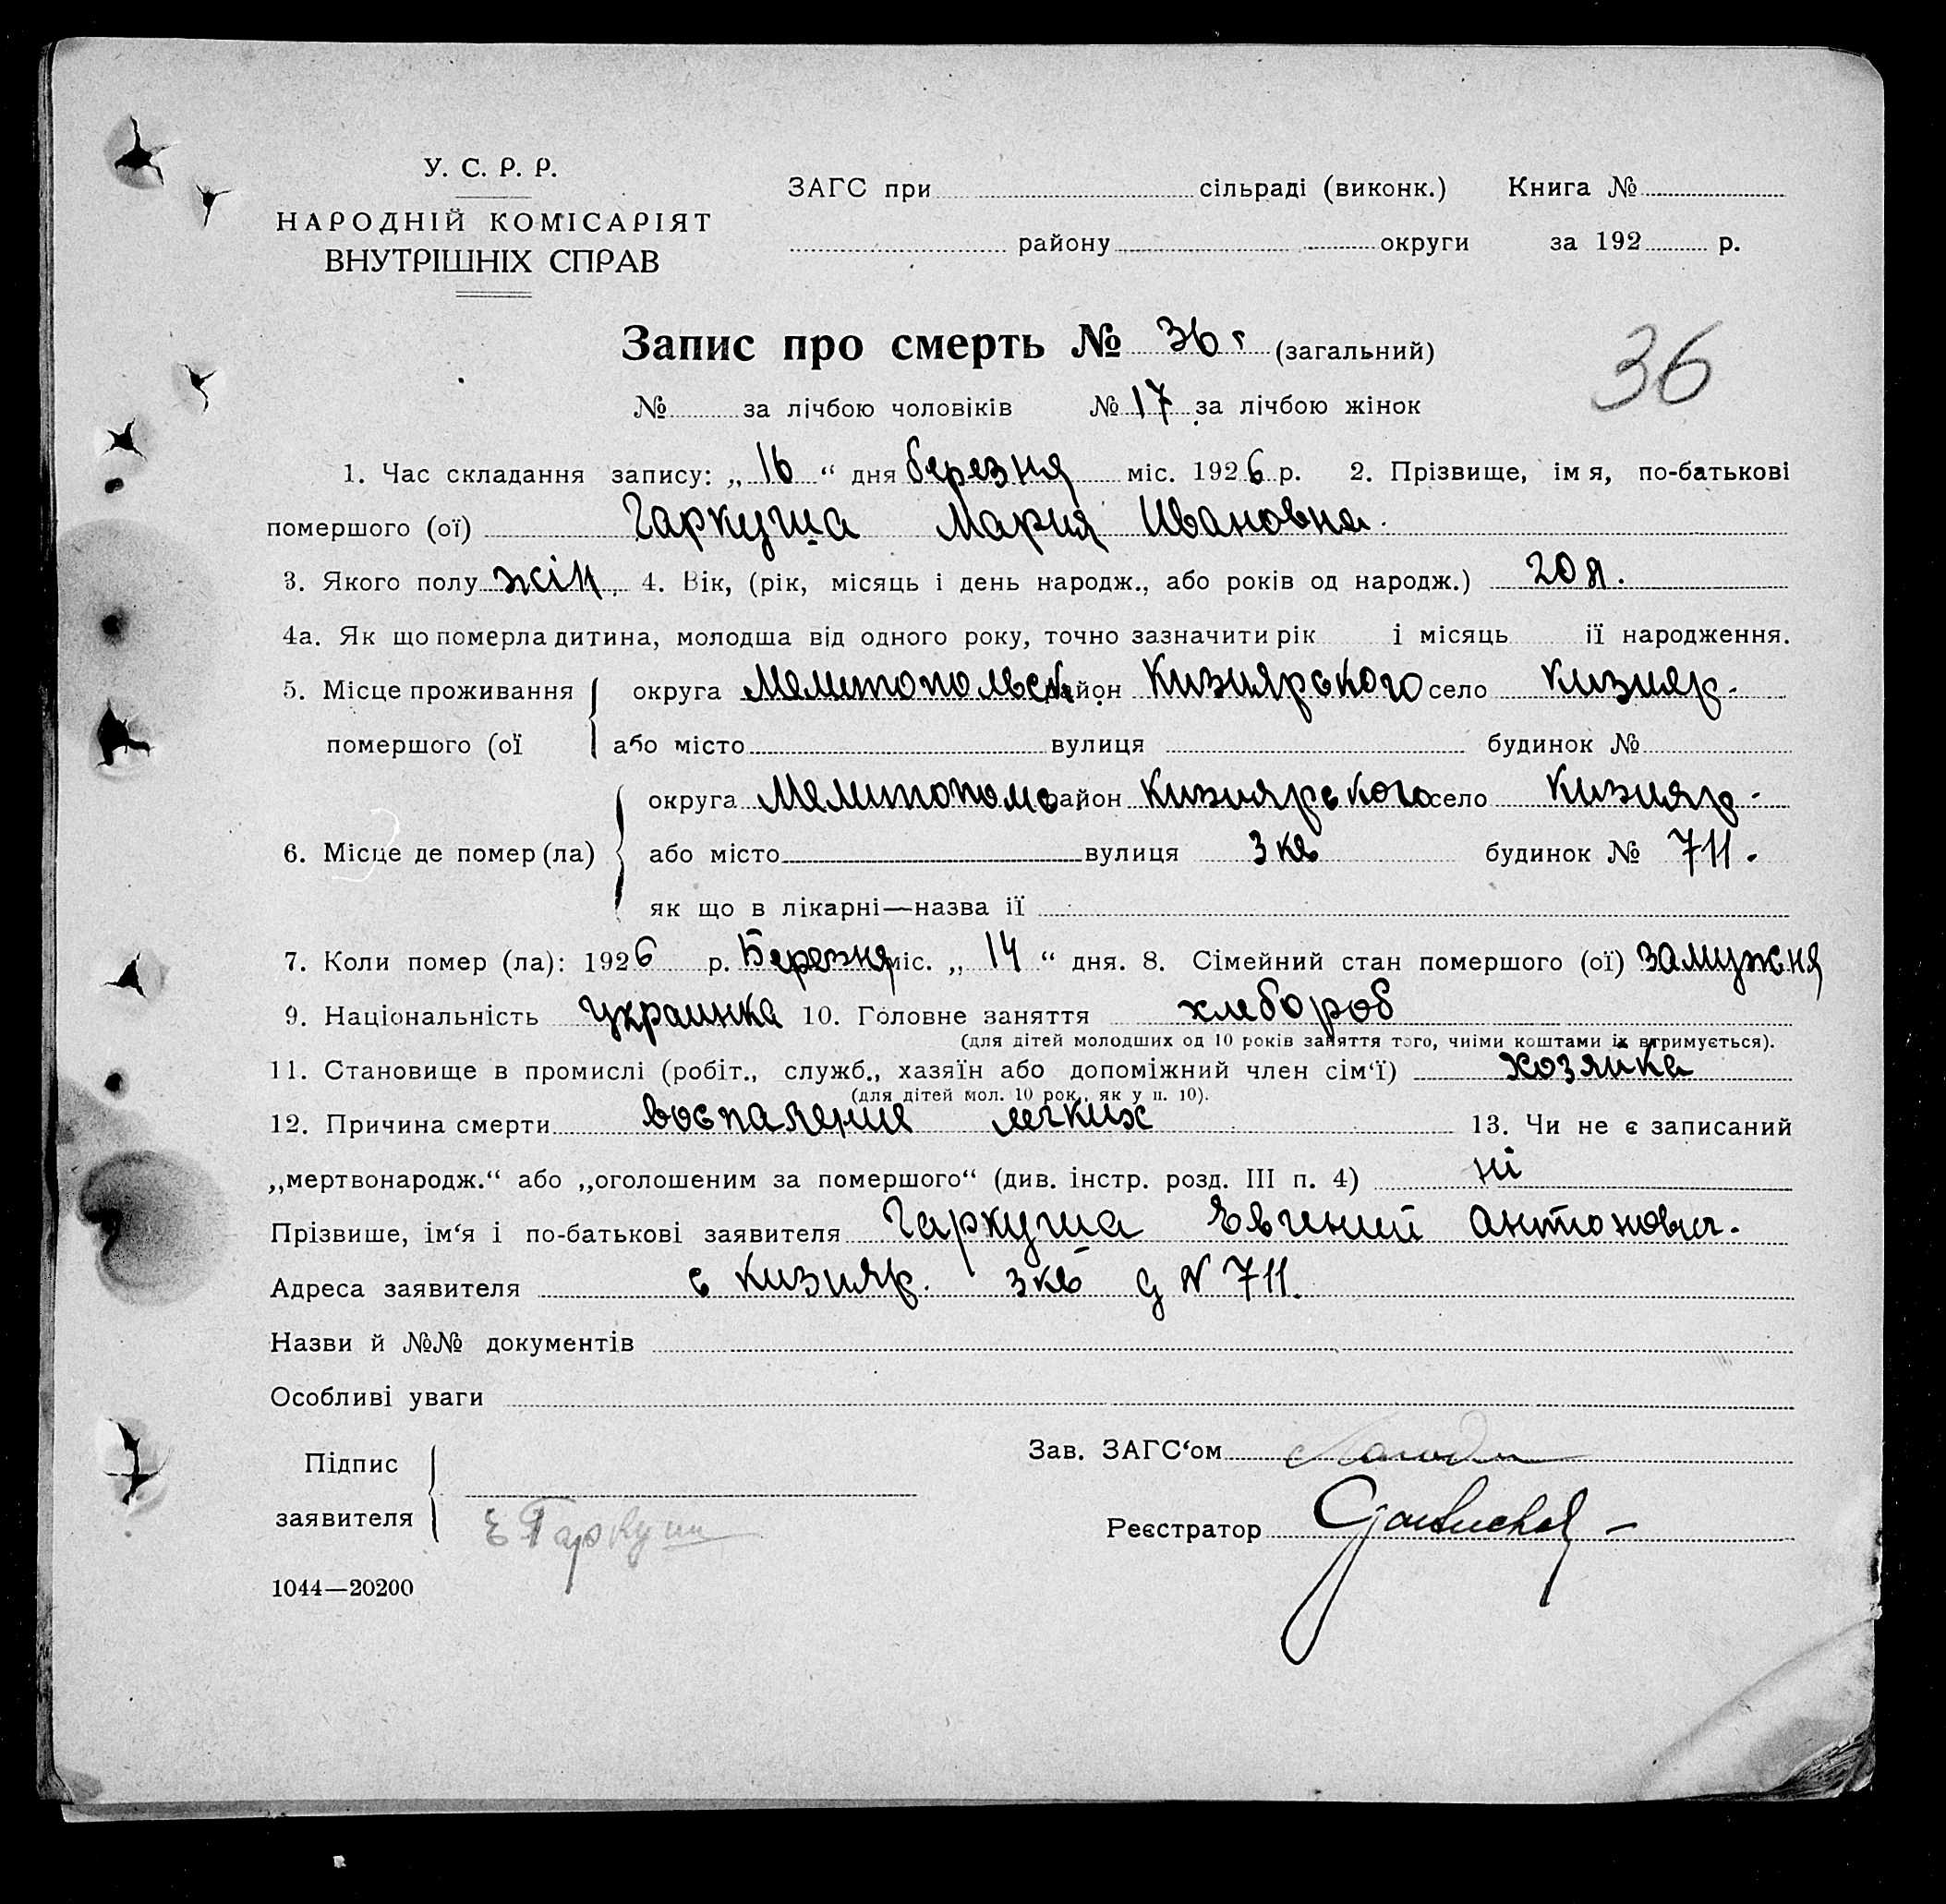 У. С. Р. Р.
НАРОДНІЙ КОМІСАРІЯТ
ВНУТРІШНІХ СПРАВ
ЗАГС при сільраді (виконк.) Книга №
району округи за 192 р.
Запис про смерть № 36 (загальний)
36
№ за лічбою чоловіків № 17 за лічбою жінок
1. Час складання запису: „16“ дня березня міс. 1926 р. 2. Прізвище, імя, по-батькові
помершого (ої) Гаркуша Мария Ивановна.
3. Якого полу жін, 4. Вік, (рік, місяць і день народж., або років од народж.) 20 л.
4а. Як що померла дитина, молодша від одного року, точно зазначити рік і місяць її народження.
5. Місце проживання округа Мелитопольск район Кизиярского село Кизияр.
помершого (ої або місто вулиця будинок №
округа Мелитополь район Кизиярского село Кизияр.
6. Місце де помер (ла) або місто вулиця 3 кв будинок № 711.
як що в лікарні—назва її
7. Коли помер (ла): 1926 р. Березня міс. „14“ дня. 8. Сімейний стан помершого (ої) замужня
9. Національність украинка 10. Головне заняття хлебороб
(для дітей молодших од 10 років заняття того, чиїми коштами їх втримується).
11. Становище в промислі (робіт., служб., хазяїн або допоміжний член сім‘ї) хозяйка
(для дітей мол. 10 рок., як у п. 10).
12. Причина смерти воспаление легких 13. Чи не є записаний
„мертвонародж.“ або „оголошеним за помершого“ (див. інстр. розд. III п. 4) ні
Прізвише, ім‘я і по-батькові заявителя Гаркуша Евгений Антонович.
Адреса заявителя с Кизияр. 3 кв д N 711.
Назви й №№ документів
Особливі уваги
Підпис
заявителя Е Гаркуша
Зав. ЗАГС‘ом
Реєстратор
1044—20200